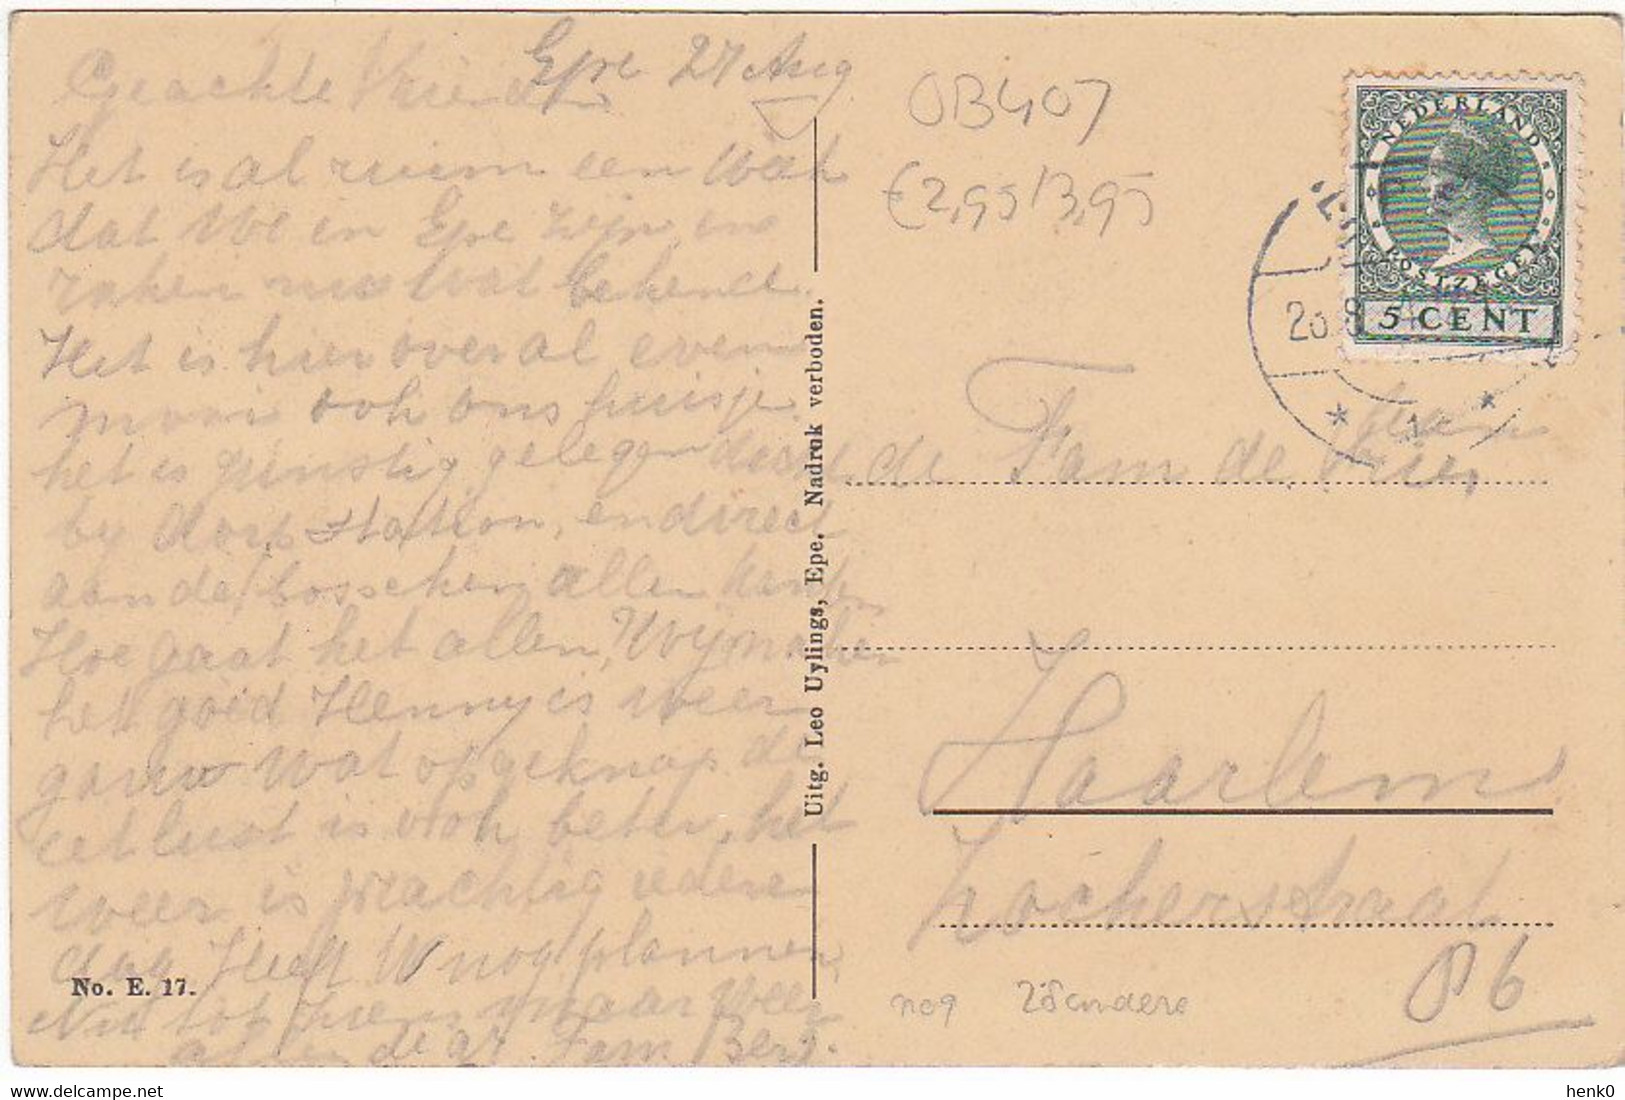 Epe 27 Aug
Geachte Vrienden
Het is al ruim een week
dat We in Epe zijn, en
raken nu wat bekend.
Het is hier overal even
mooi ook ons huisje
het is gunstig gelegen
by dorp station, en direct
aan de bosschen allen
Hoe gaat het allen, Wij maken
het goed Henny is weer
gauw wat opgeknapt de
eetlust is ook beter, het
weer is prachtig iedere
dag. Heeft U nog plannen,
Nu tot ziens maar weer
de gr Fam
No. E. 17.
Uitg. Leo Uylings, Epe. Nadruk verboden.
OB407
€2,95/3,95
NEDERLAND
POSTZEGEL
5 CENT
20.8
1
Fam de Vries
Haarlem
Zocherstraat
96
no9
henk0